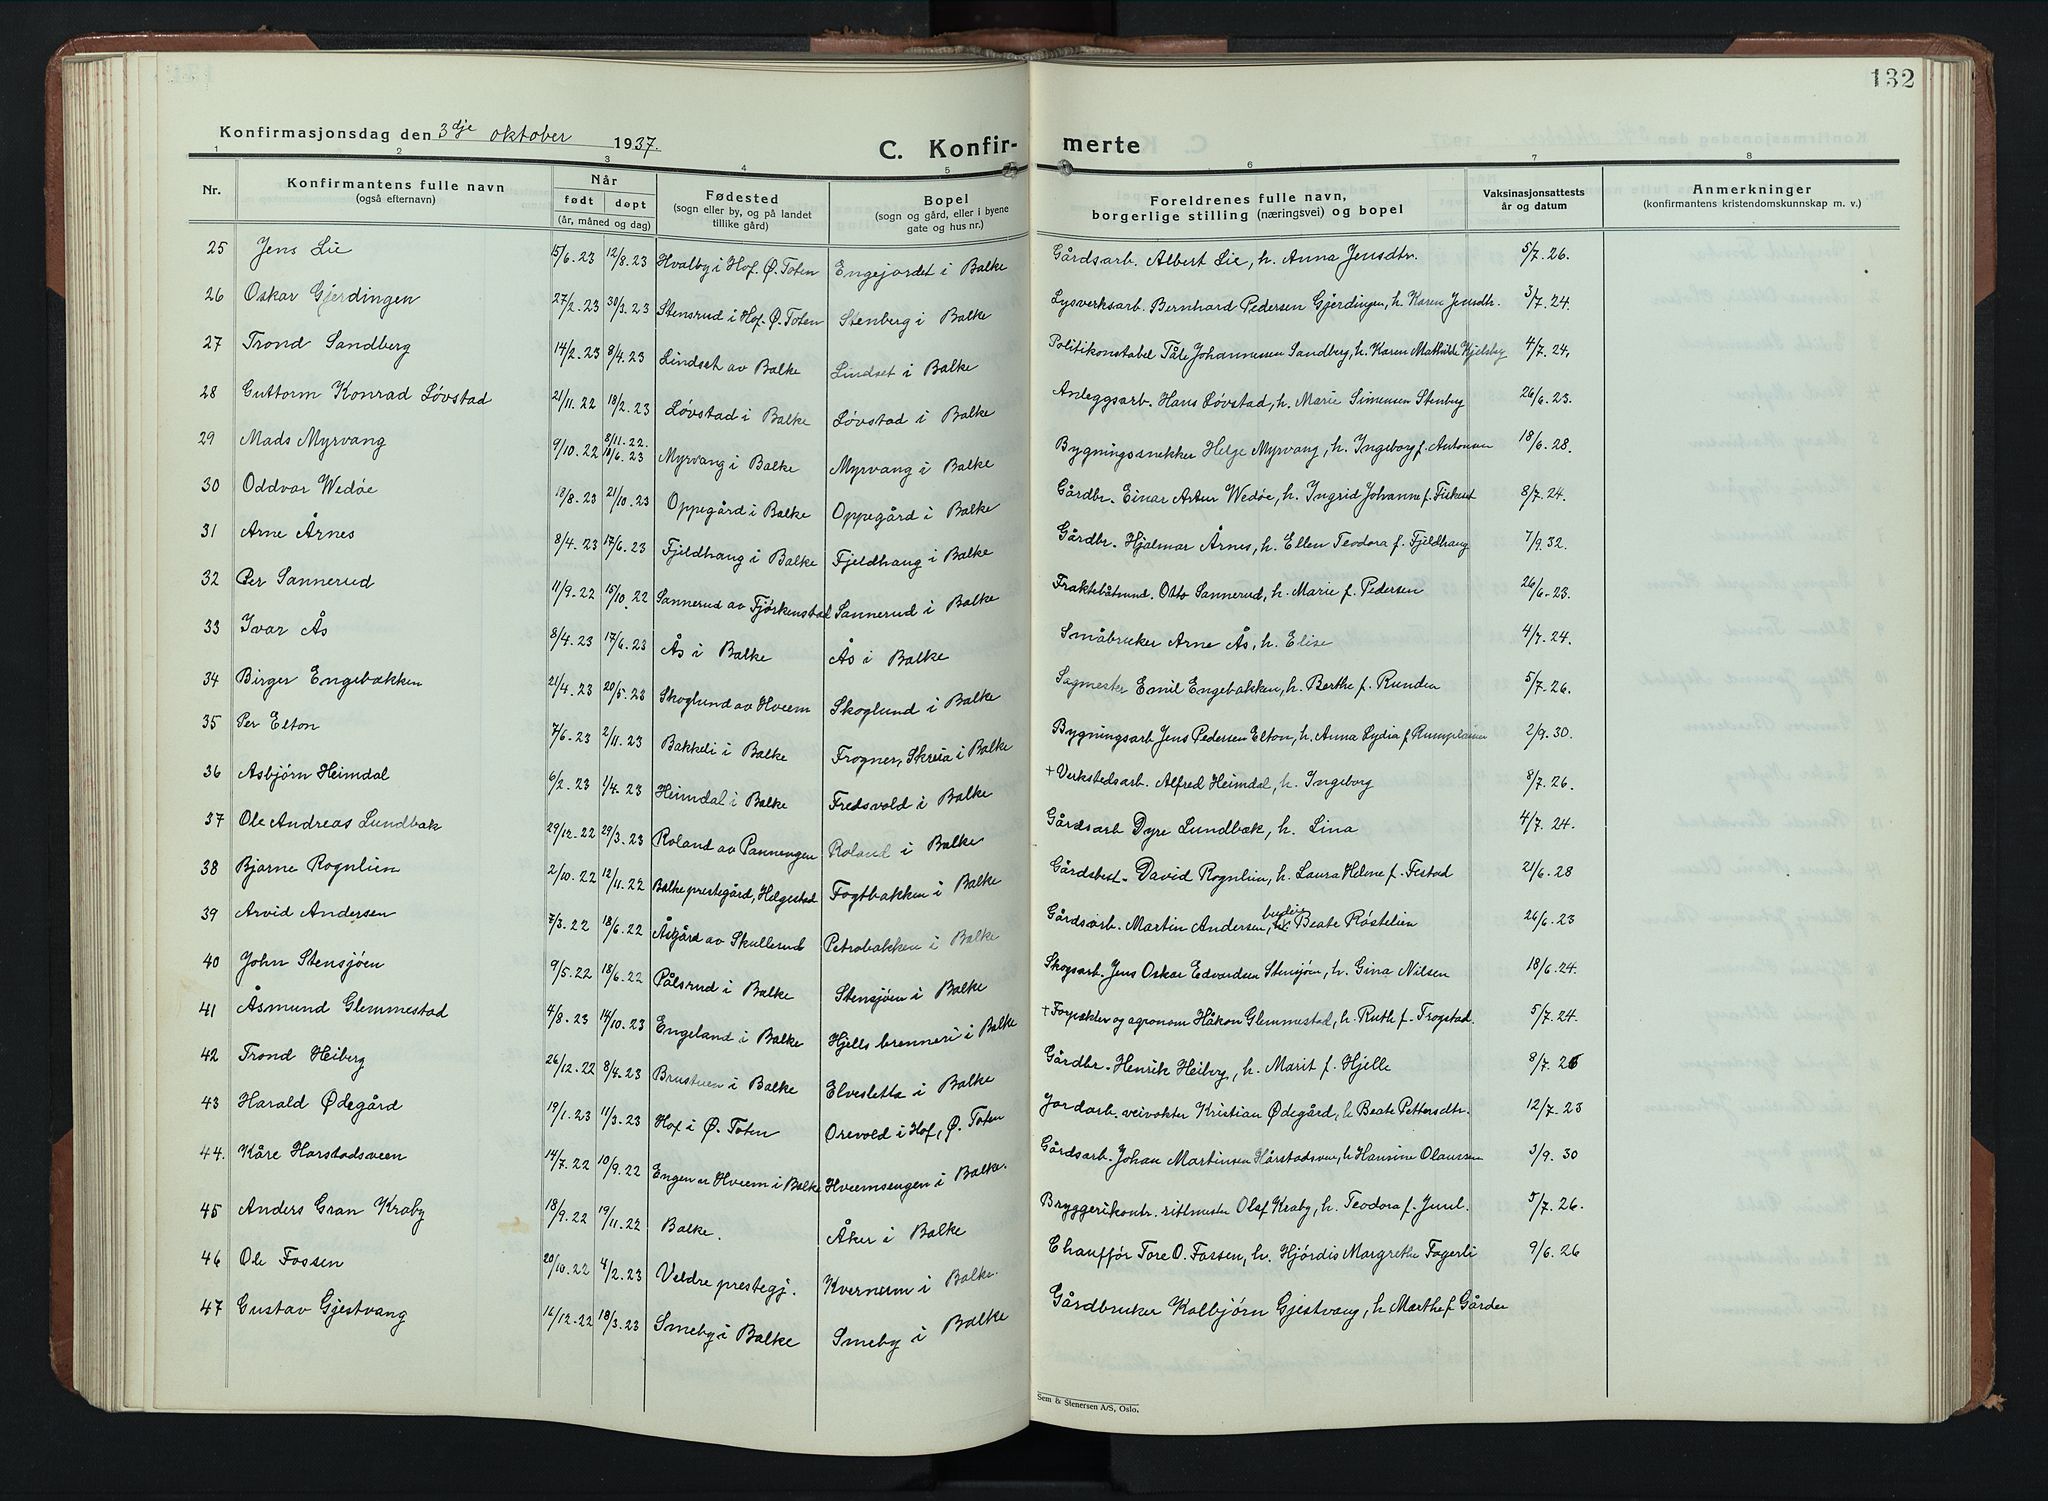 132
Konfirmasjonsdag den 3dje oktober 1937.
C. Konfir-merte
1 2 3 4 5 6 7 8
Nr. Konfirmantens fulle navn (også efternavn) Når født døpt (år, måned og dag) Fødested (sogn eller by, og på landet tillike gård) Bopel (sogn og gård, eller i byene gate og hus nr.) Foreldrenes fulle navn, borgerlige stilling (næringsvei) og bopel Vaksinasjonsattests år og datum Anmerkninger (konfirmantens kristendomskunnskap m. v.)
25 Jens Lie 15/6.23 12/8.23 Hvalby i Hof. Ø. Toten Engejordet i Balke Gårdsarb. Albert Lie, h. Anna Jensdtr. 5/7.26.
26 Oskar Gjerdingen 27/2.23 30/3.23 Stensrud i Hof. Ø. Toten Stenberg i Balke Lysverksarb. Bernhard Pedersen Gjerdingen, h. Karen Jensdtr. 3/7.24.
27 Trond Sandberg 14/2.23 8/4.23 Lindset av Balke Lindset i Balke Politikonstabel Tåle Johannesen Sandberg, h. Karen Mathilde Kjelsby 4/7.24.
28 Guttorm Konrad Løvstad 21/11.22 18/2.23 Løvstad i Balke Løvstad i Balke Anleggsarb. Hans Løvstad, h. Marie Simensen Stenberg 26/6.23.
29 Mads Myrvang 9/10.22 8/11.22. 18/6.23 Myrvang i Balke Myrvang i Balke Bygningssnekker Helge Myrvang, h. Ingeborg f. Antonsen 18/6.28.
30 Oddvar Wedøe 18/8.23 21/10.23 Oppegård i Balke Oppegård i Balke Gårdbr. Einar Artur Wedøe, h. Ingrid Johanne f. Fiskeset 8/7.24.
31 Arne Årnes 8/4.23 17/6.23 Fjeldhaug i Balke Fjeldhaug i Balke Gårdbr. Hjalmar Årnes, h. Ellen Teodora f. Fjeldhaug 7/9.32.
32 Per Sannerud 11/9.22 15/10.22 Sannerud av Fjørkenstad Sannerud i Balke Fraktebåtmnd. Otto Sannerud, h. Marie f. Pedersen 26/6.23.
33 Ivar Ås 8/4.23 17/6.23 Ås i Balke Ås i Balke Småbruker Arne Ås, h. Elise 4/7.24.
34 Birger Engebakken 21/4.23 20/5.23 Skoglund av Hveem Skoglund i Balke Sagmester Emil Engebakken, h. Berthe f. Runden 5/7.26.
35 Per Elton 7/6.23 2/11.23 Bakkeli i Balke Frogner, Skreia i Balke Bygningsarb. Jens Pedersen Elton, h. Anna Lydia f. 2/9.30.
36 Asbjørn Heimdal 6/2.23 1/4.23 Heimdal i Balke Fredsvold i Balke + Verkstedsarb. Alfred Heimdal, h. Ingeborg 8/7.26.
37 Ole Andreas Lundbak 29/12.22 29/3.23 Roland av Pannengen Roland i Balke Gårdsarb. Dyre Lundbæk, h. Lina 4/7.24.
38 Bjarne Rognlien 2/10.22 12/11.22 Balke prestegård, Helgestad Fogtbakken i Balke Gårdsbest. David Rognlien, h. Laura Helene f. Fistad 21/6.28
39 Arvid Andersen 7/3.22 18/6.22 Åsgård av Skullerud Petrobakken i Balke Gårdsarb. Martin Andersen, budeie Beate Røstelien 26/6.23
40 John Stensjøen 9/5.22 18/6.22 Pålsrud i Balke Stensjøen i Balke Skogsarb. Jens Oskar Edvardsen Stensjøen, h. Gina Nilsen 18/6.24.
41 Åsmund Glemmestad 4/8.23 14/10.23 Engeland i Balke Hjells brenneri i Balke + Forpakter og agronom Håkon Glemmestad, h. Ruth f. Trogstad. 5/7.24.
42 Trond Heiberg 26/12.22 8/4.23 Brustuen i Balke Elvesletta i Balke Gårdbr. Henrik Heiberg, h. Marit f. Hjelle 8/7.26
43 Harald Ødegård 19/1.23 11/3.23 Hof i Ø. Toten Orevold i Hof, Ø. Toten Jordarb. veivokter Kristian Ødegård, h. Beate Pettersdtr. 12/7.23
44. Kåre Harstadsveen 14/7.22 10/9.22 Engen av Hveem i Balke Hveemsengen i Balke. Gårdsarb. Johan Martinsen Hårstadsveen, h. Hansine Olaussen 3/9.30
45 Anders Gran Kraby 18/9.22 19/11.22 Balke. Åker i Balke Bryggerikontr. ritmester Olaf Kraby, h. Teodora f. Juul. 5/7.26.
46 Ole Fossen 20/10.22 4/2.23 Veldre prestegj. Kvernum i Balke. Chauffør Tore O. Fossen, h. Hjørdis Margrethe Fagerli 9/6.26
47 Gustav Gjestvang 16/12.22 18/3.23 Smeby i Balke Smeby i Balke Gårdbruker Kolbjørn Gjestvang, h. Marthe f. Gårder
Sem & Stenersen A/S, Oslo.